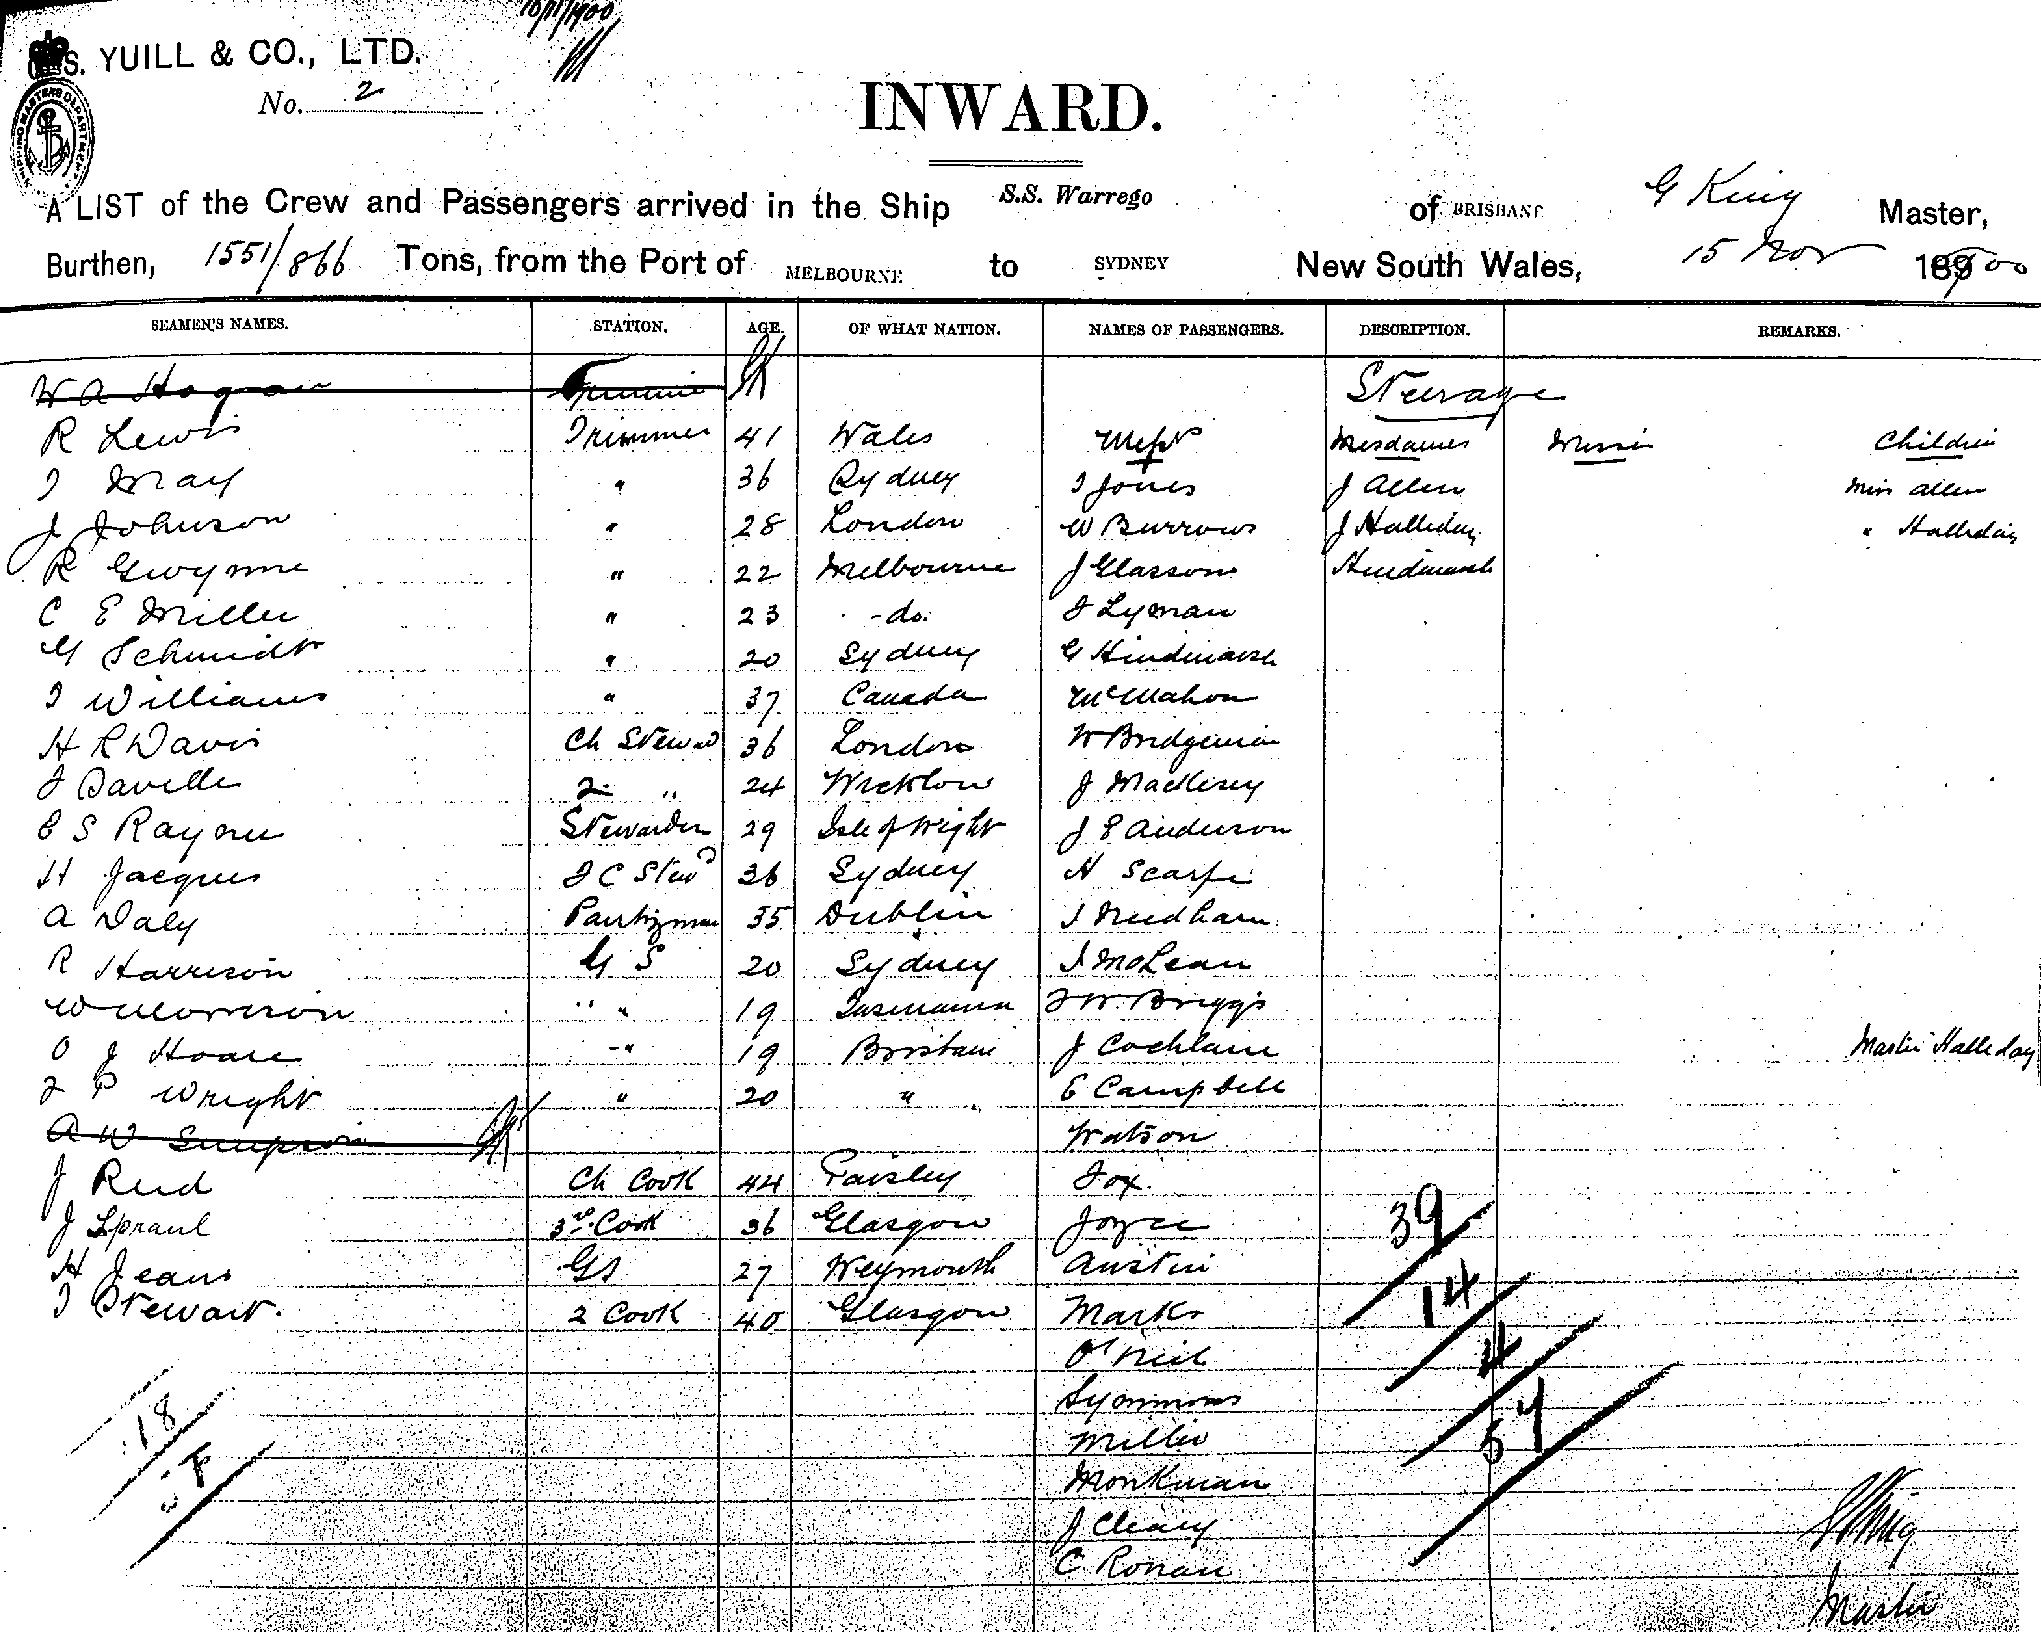 16/11/1900
S. YUILL & CO., LTD.
No. 2
INWARD.
A LIST of the Crew and Passengers arrived in the Ship S.S. Warrego of BRISBANE G King Master,
Burthen, 1551/866 Tons, from the Port of MELBOURNE to SYDNEY New South Wales, 15 Nov 1900
SEAMEN'S NAMES. STATION. AGE. OF WHAT NATION. NAMES OF PASSENGERS. DESCRIPTION. REMARKS.
W A Hogan Steerage
R Lewis Trimmer 41 Wales Messrs Mesdames Misses Children
T May " 36 Sydney T Jones J Allen Miss Allen
J Johnson " 28 London W Burrows J Halliday " Halliday
R Gwynne " 22 Melbourne J Glasson Hindmarsh
C E Miller " 23 -do. J Lyman
G Schmidt " 20 Sydney G Hindmarsh
T Williams " 37 Canada McMahon
H R Davis Ch Steward 36 London W Bridgeman
J Saville 2 " 24 Wicklow J
E S Rayner Stewardess 29 Isle of Wight J E Anderson
H Jacques F C Stewd 36 Sydney H Scarfe
A Daly Pantryman 35 Dublin J Needham
R Harrison G S 20 Sydney J McLean
W Morrison " " 19 Tasmania F W Briggs
O J Hoare " 19 Brisbane J Cochlane Master Halleday
F P Wright " 20 " E Campbell
A W Simpson Watson
J Reid Ch Cook 44 Paisley Fox.
J Spraul 3rd Cook 36 Glasgow Joyce 39
H Jeans GS 27 Weymouth Austin
T Stewart. 2 Cook 40 Glasgow Marks 14
O'Neil 4
18 Symmons
Miller 57
Monkman
J Cleary
C Ronan G King
Master